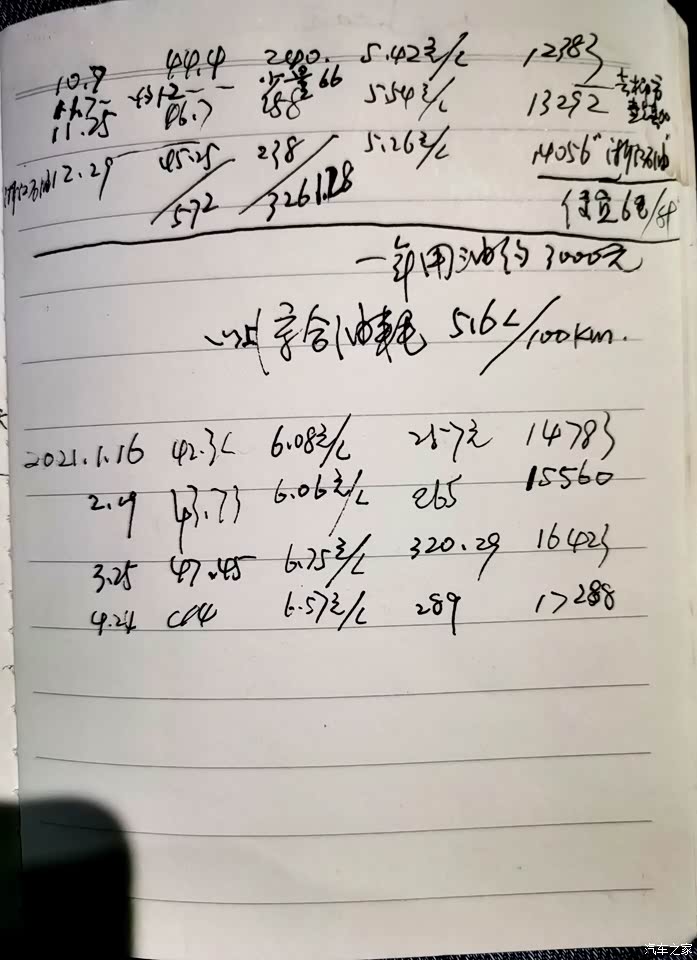 10.7 44.4 240. 5.42元/L 12383
11.25 46.7 258 5.54元/L 13292
12.29 45.25 238 5.26元/L 14056
572 3261.28 6元/升
一年用油约3000元
综合油耗 5.6L/100km.
2021.1.16 42.3L 6.08元/L 257元 14783
2.19 43.73 6.06元/L 265 15560
3.25 47.45 6.75元/L 320.29 16423
4.24 44 6.57元/L 289 17288
汽车之家